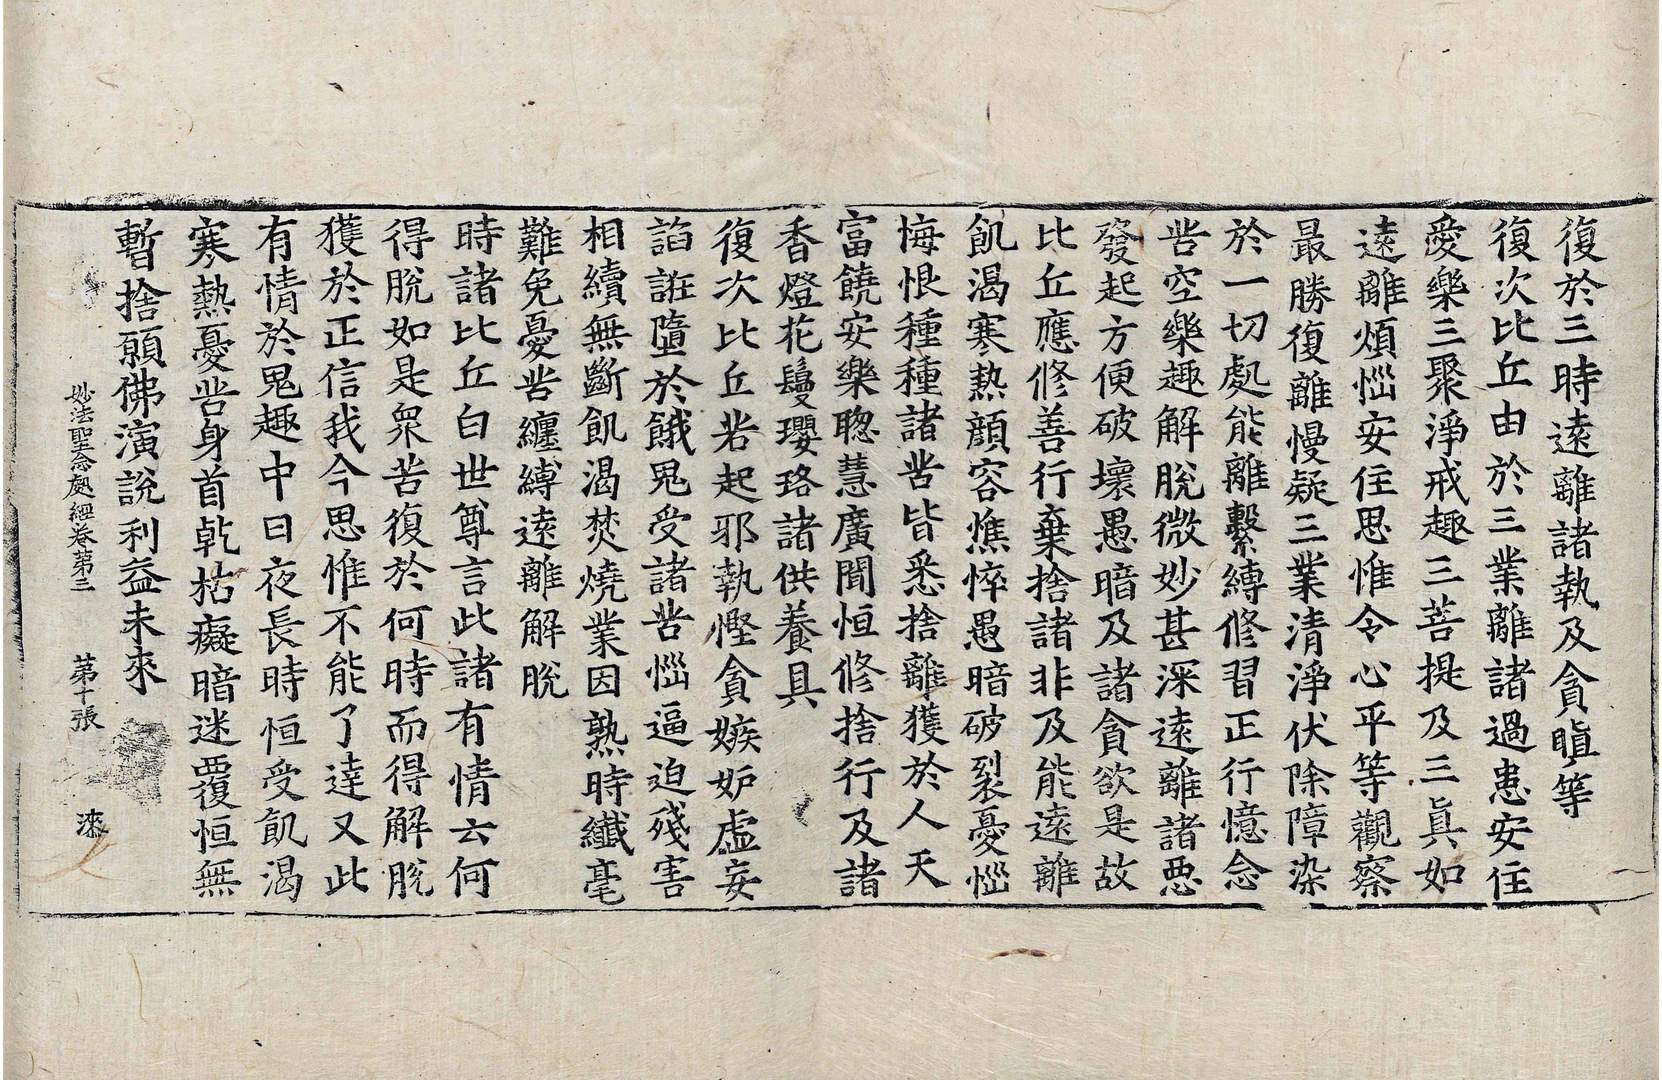 復於三時遠離諸執及貪瞋等
復次比丘由於三業離諸過患安住
愛樂三聚淨戒趣三菩提及三眞如
遠離煩惱安住思惟令心平等觀察
最勝復離慢疑三業清淨伏除障染
於一切處能離繫縛修習正行憶念
苦空樂趣解脫微妙甚深遠離諸惡
發起方便破壞愚暗及諸貪欲是故
比丘應修善行棄捨諸非及能遠離
飢渴寒熱顔容憔悴愚暗破裂憂惱
悔恨種種諸苦皆悉捨離獲於人天
富饒安樂聦慧廣聞恒修捨行及諸
香燈花鬘瓔珞諸供養具
復次比丘若起邪執慳貪嫉妒虛妄
諂誑墮於餓鬼受諸苦惱逼迫殘害
相續無斷飢渴焚燒業因熟時纖毫
難免憂苦纏縛遠離解脫
時諸比丘白世尊言此諸有情云何
得脫如是衆苦復於何時而得解脫
獲於正信我今思惟不能了達又此
有情於鬼趣中日夜長時恒受飢渴
寒熱憂苦身首乾枯癡暗迷覆恒無
暫捨願佛演說利益未來
妙法聖念處經卷第三 第十張 漆